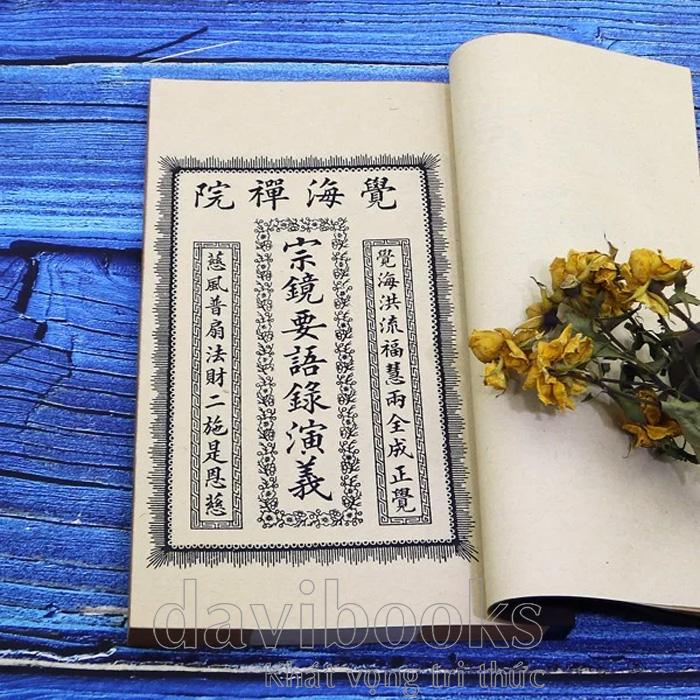 覺海禪院
覺海洪流福慧兩全成正覺
宗鏡要語錄演義
慈風普扇法財二施是恩慈
davibooks
Khát vọng tri thức